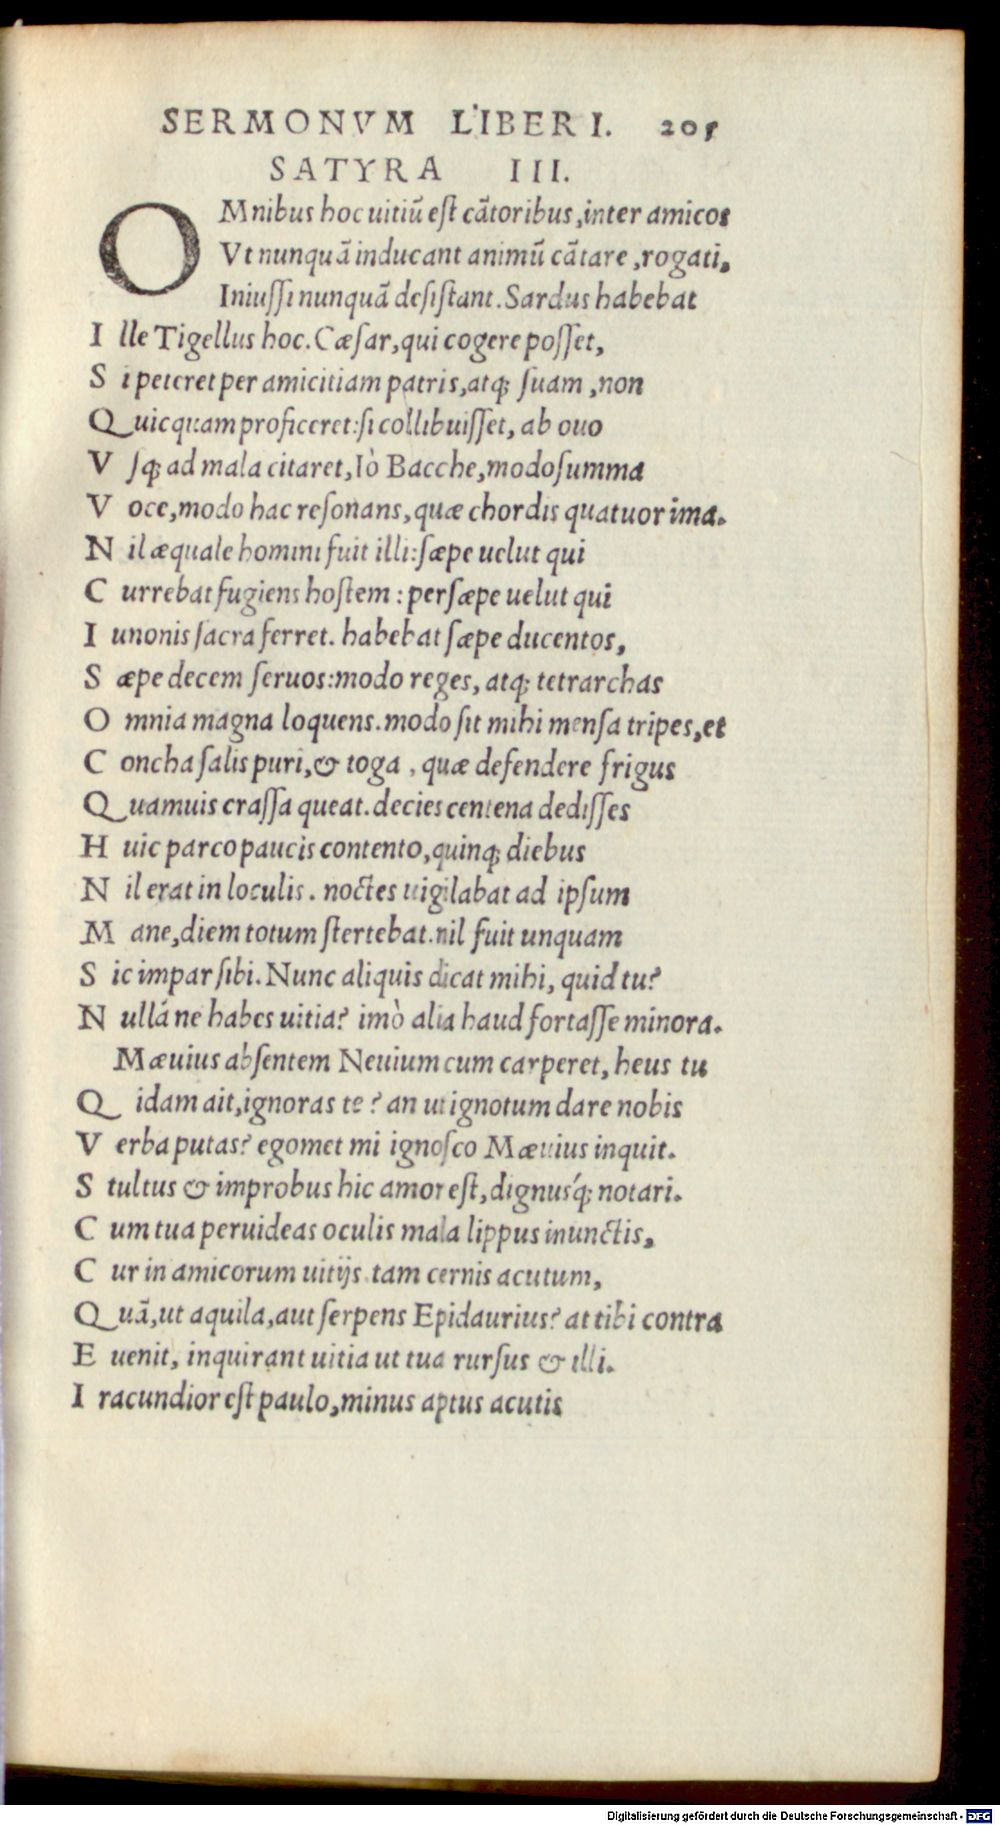 SERMONVM LIBER I. 205
SATYRA III.
OMnibus hoc uitiũ est cãtoribus, inter amicos
Vt nunquã inducant animũ cãtare, rogati,
Iniussi nunquã desistant. Sardus habebat
Ille Tigellus hoc. Cæsar, qui cogere posset,
Si peteret per amicitiam patris, atq; suam, non
Quicquam proficeret: si collibuisset, ab ouo
Vsq; ad mala citaret, Iò Bacche, modo summa
Voce, modo hac resonans, quæ chordis quatuor ima.
Nil æquale homini fuit illi: sæpe uelut qui
Currebat fugiens hostem: persæpe uelut qui
Iunonis sacra ferret. habebat sæpe ducentos,
Sæpe decem seruos: modo reges, atq; tetrarchas
Omnia magna loquens. modo sit mihi mensa tripes, et
Concha salis puri, & toga, quæ defendere frigus
Quamuis crassa queat. decies centena dedisses
Huic parco paucis contento, quinq; diebus
Nil erat in loculis. noctes uigilabat ad ipsum
Mane, diem totum stertebat. nil fuit unquam
Sic impar sibi. Nunc aliquis dicat mihi, quid tu?
Nullá ne habes uitia? imò alia haud fortasse minora.
Mæuius absentem Neuium cum carperet, heus tu
Qidam ait, ignoras te? an ut ignotum dare nobis
Verba putas? egomet mi ignosco Mæuius inquit.
Stultus & improbus hic amor est, dignusq́; notari.
Cum tua peruideas oculis mala lippus inunctis,
Cur in amicorum uitijs tam cernis acutum,
Quã, ut aquila, aut serpens Epidaurius? at tibi contra
Euenit, inquirant uitia ut tua rursus & illi.
Iracundior est paulo, minus aptus acutis
Digitalisierung gefördert durch die Deutsche Forschungsgemeinschaft - DFG